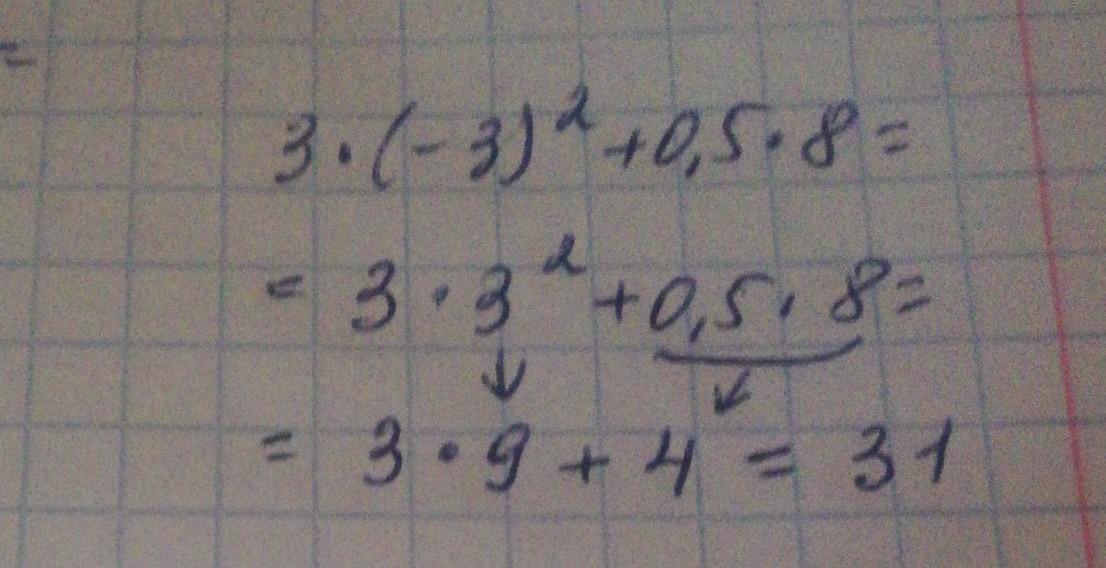 =
3·(-3)²+0,5·8=
= 3·3²+0,5·8=
↓ ↙
= 3·9+4=31